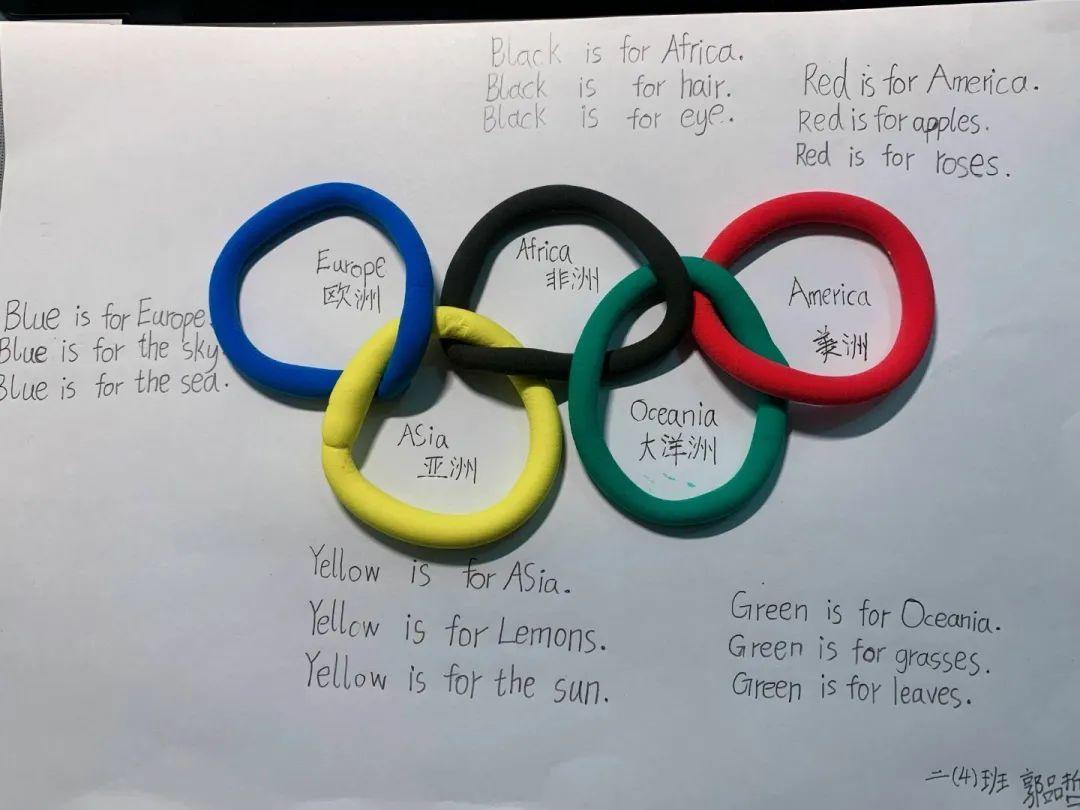 Black is for Africa.
Black is for hair.
Black is for eye.
Red is for America.
Red is for apples.
Red is for roses.
Europe
欧洲
Africa
非洲
America
美洲
Blue is for Europe.
Blue is for the sky.
Blue is for the sea.
Asia
亚洲
Oceania
大洋洲
Yellow is for Asia.
Yellow is for Lemons.
Yellow is for the sun.
Green is for Oceania.
Green is for grasses.
Green is for leaves.
二(4)班 郭品哲